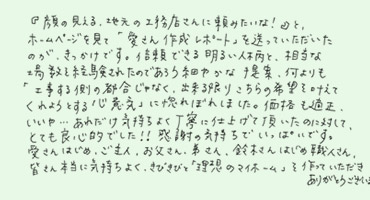 『顔の見える、地元の工務店さんに頼みたいな!』と、
ホームページを見て「愛さん作成レポート」を送っていただいた
のが、きっかけです。信頼できる明るい人柄と、相当な
場数を経験されたのであろう細やかな提案、何よりも
「工事する側の都合じゃなく、出来る限りこちらの希望を叶えて
くれようとする心意気」に惚れぼれしました。価格も適正、
いいや…あれだけ気持ちよく丁寧に仕上げて頂いたのに対して、
とても良心的でした!!感謝の気持ちでいっぱいです。
愛さんはじめ、ご主人、お父さん、弟さん、鈴木さんはじめ職人さん、
皆さん本当に気持ちよく、きびきびと「理想のマイホーム」を作っていただき
ありがとうござい